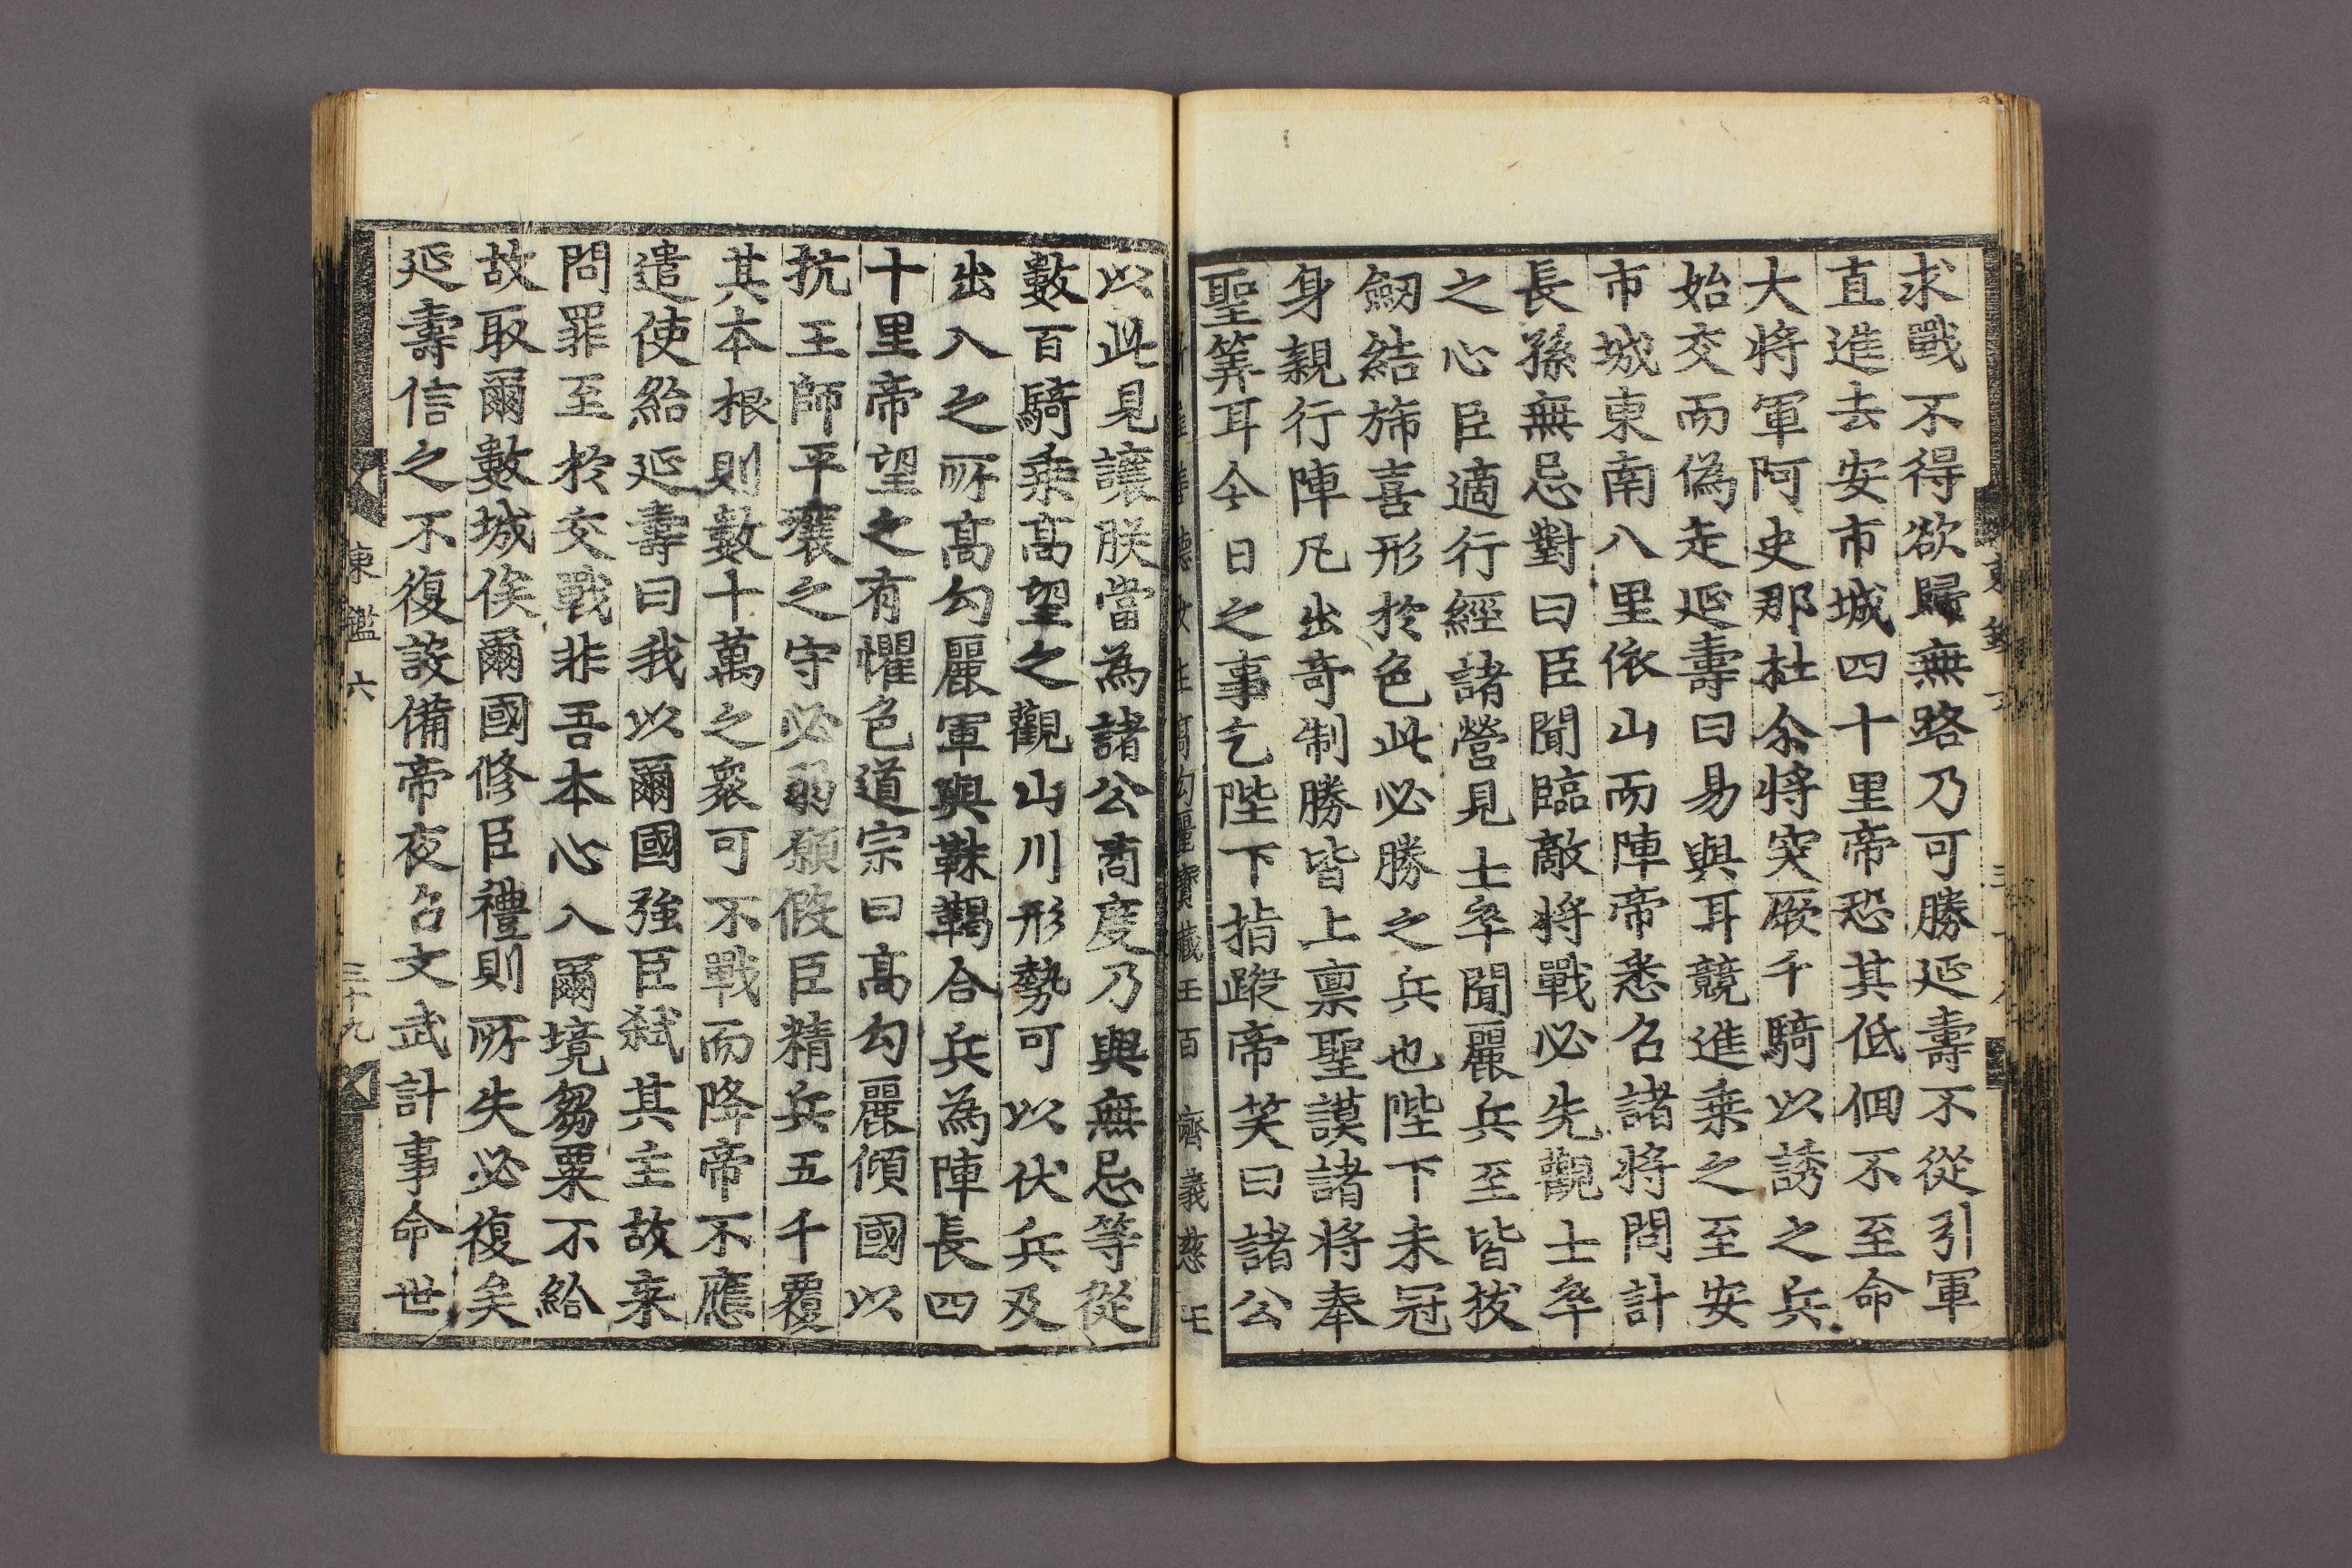 求戰不得欲歸無路乃可勝延壽不從引軍
直進去安市城四十里帝恐其低佪不至命
大將軍阿史那杜尒將突厥千騎以誘之兵
始交而偽走延壽曰易與耳競進乗之至安
市城東南八里依山而陣帝悉召諸將問計
長孫無忌對曰臣聞臨敵將戰必先觀士卒
之心臣適行經諸營見士卒聞麗兵至皆拔
劒結斾喜形於色此必勝之兵也陛下未冠
身親行陣凡出奇制勝皆上禀聖謨諸將奉
聖筭耳今日之事乞陛下指蹤帝笑曰諸公
以此見讓朕當為諸公商度乃與無忌等從
數百騎乘高望之觀山川形勢可以伏兵及
出入之所高勾麗軍與靺鞨合兵為陣長四
十里帝望之有懼色道宗曰高勾麗傾國以
抗王師平壤之守必弱願假臣精兵五千覆
其本根則數十萬之衆可不戰而降帝不應
遣使紿延壽曰我以爾國強臣弑其主故来
問罪至於交戰非吾本心入爾境芻粟不給
故取爾數城俟爾國修臣禮則所失必復矣
延壽信之不復設備帝夜召文武計事命世
東鑑六 三十九